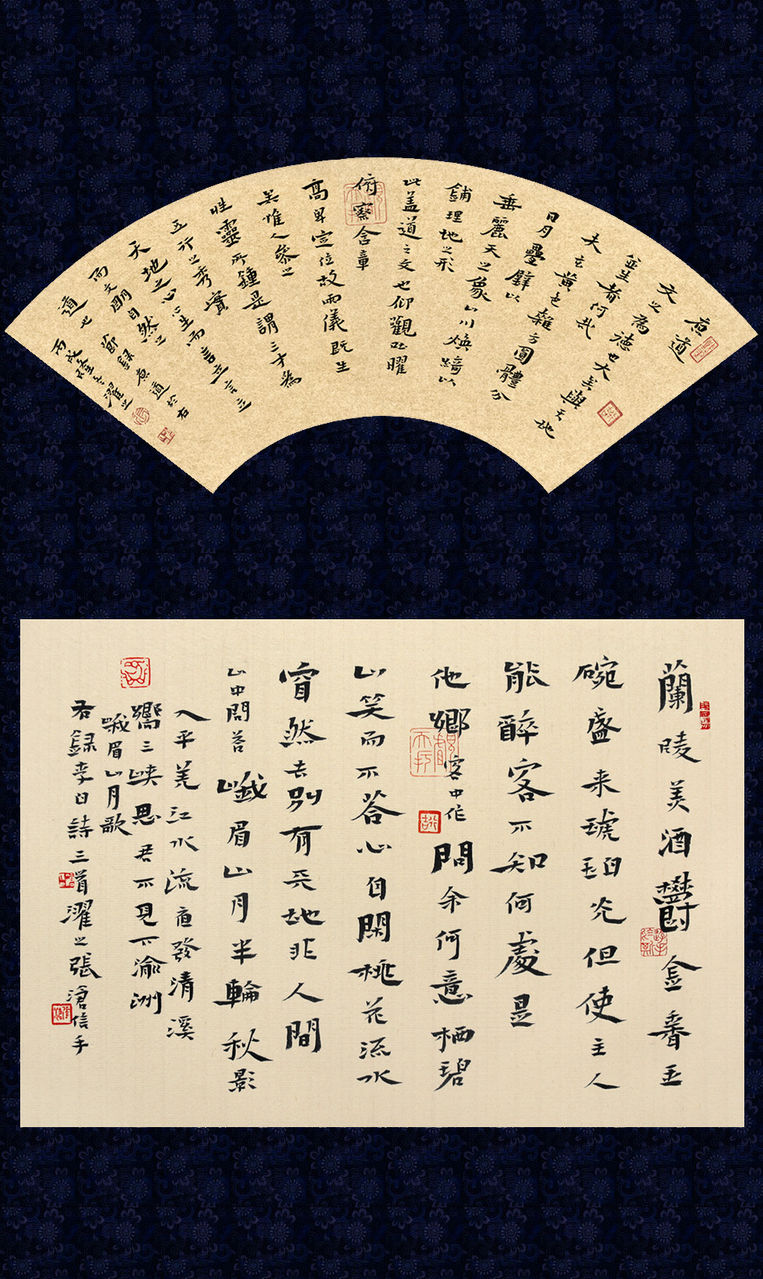 原道
文之為德也大矣與天地
並生者何哉
夫玄黃色雜方圓體分
日月疊璧以
垂麗天之象山川煥綺以
鋪理地之形
此蓋道之文也仰觀吐曜
俯察含章
高卑定位故兩儀既生
矣惟人參之
性靈所鍾是謂三才為
五行之秀實
天地之心心生而言立言立
而文明自然之
道也 節錄原道於右
丙戌隆冬濯之
蘭陵美酒鬱金香玉
碗盛来琥珀光但使主人
能醉客不知何處是
他鄉 客中作 問余何意栖碧
山笑而不荅心自閑桃花流水
窅然去別有天地非人間
山中問荅 峨眉山月半輪秋影
入平羌江水流夜發清溪
嚮三峽思君不見下渝洲
峨眉山月歌
右錄李白詩三首濯之張滄信手